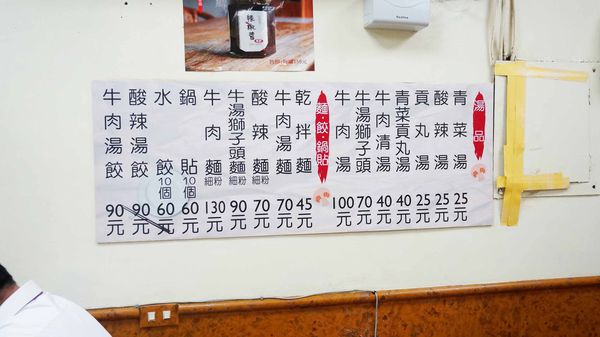 辣椒醬
湯品
青菜湯 25元
酸辣湯 25元
貢丸湯 25元
青菜貢丸湯 40元
牛肉清湯 40元
牛湯獅子頭 70元
牛肉湯 100元
麵·餃·鍋貼
乾拌麵 45元
牛肉湯麵 70元
酸辣麵 細粉 70元
牛湯獅子頭麵 細粉 90元
牛肉麵 細粉 130元
鍋貼 10個 60元
水餃 10個 60元
酸辣湯餃 90元
牛肉湯餃 90元